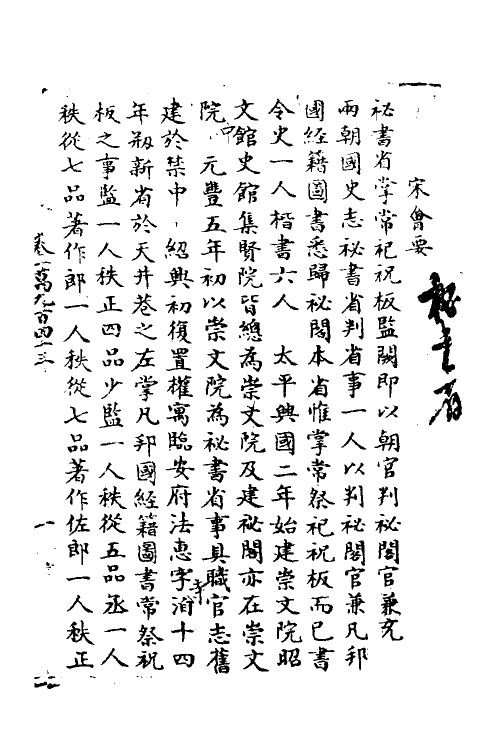 宋會要
秘書省
祕書省掌常祀祝板監闕即以朝官判祕閣官兼充
兩朝國史志祕書省判省事一人以判祕閣官兼凡邦
國經籍圖書悉歸祕閣本省惟掌常祭祀祝板而已書
令史一人楷書六人　太平興國二年始建崇文院昭
文館史館集賢院皆總為崇文院及建祕閣亦在崇文
院中　元豐五年初以崇文院為祕書省事具職官志舊
建於禁中　紹興初復置權寓臨安府法惠寺　十四
年剏新省於天井巷之左掌凡邦國經籍圖書常祭祝
板之事監一人秩正四品少監一人秩從五品丞一人
秩從七品著作郎一人秩從七品著作佐郎一人秩正
卷一萬九百四十三
一